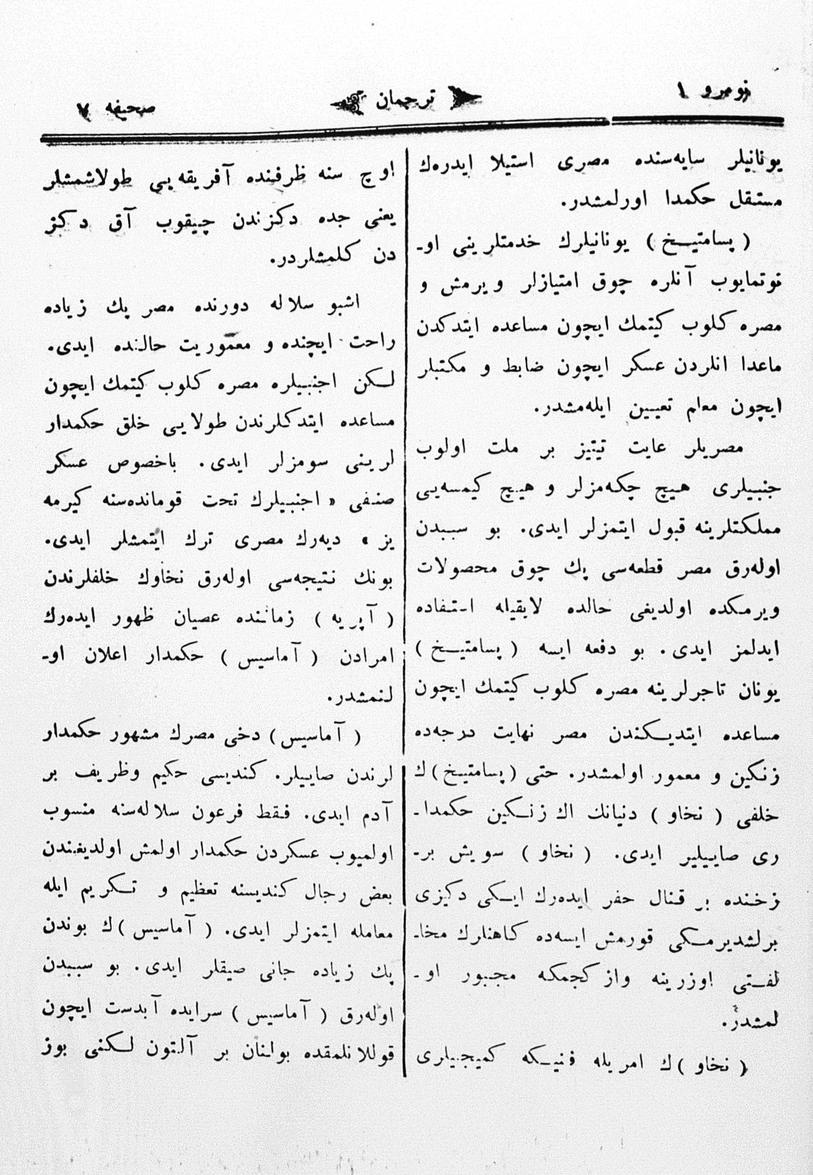 نومرو ١
ترجمان
صحيفه ٧
يونانيلر سايه‌سنده مصرى استيلا ايدرەك
مستقل حكمدا اورلمشدر.
( پسامتيخ ) يونانيلرك خدمتلرينى او-
نوتمايوب آنلره چوق امتيازلر ويرمش و
مصره كلوب كيتمك ايچون مساعده ايتدكدن
ماعدا انلردن عسكر ايچون ضابط و مكتبلر
ايچون معام تعيين ايله‌مشدر.
مصريلر عايت تيتيز بر ملت اولوب
جنبيلرى هيچ چكه‌مزلر و هيچ كيمسه‌يى
مملكتلرينه قبول ايتمزلر ايدى. بو سببدن
اوله‌رق مصر قطعه‌سى پك چوق محصولات
ويرمكده اولديغى حالده لايقيله استفاده
ايدلمز ايدى. بو دفعه ايسه ( پسامتيخ )
يونان تاجرلرينه مصره كلوب كيتمك ايچون
مساعده ايتديكندن مصر نهايت درجه‌ده
زنكين و معمور اولمشدر. حتى ( پسامتيخ )ك
خلفى ( نخاو ) دنيانك اك زنكين حكمدا-
رى صاييلير ايدى. ( نخاو ) سويش بر-
زخنده بر قنال حفر ايدەرك ايكى دكزى
برلشديرمكى قورمش ايسه‌ده كاهنلرك مخا-
لفتى اوزرينه وازكچمكه مجبور او-
لمشدر.
( نخاو )ك امريله فنيكه كميجيلرى
اوچ سنه ظرفنده آفريقه‌يى طولاشمشلر
يعنى جده دكزندن چيقوب آق دكز
دن كلمشلردر.
اشبو سلاله دورنده مصر پك زياده
راحت ايچنده و معموريت حالنده ايدى.
لكن اجنبيلره مصره كلوب كيتمك ايچون
مساعده ايتدكلرندن طولايى خلق حكمدار
لرينى سومزلر ايدى. باخصوص عسكر
صنفى « اجنبيلرك تحت قومانده‌سنه كيرمه
يز » ديه‌رك مصرى ترك ايتمشلر ايدى.
بونك نتيجه‌سى اوله‌رق نخاوك خلفلرندن
( آپريه ) زماننده عصيان ظهور ايدەرك
امرادن ( آماسيس ) حكمدار اعلان او-
لنمشدر.
( آماسيس ) دخى مصرك مشهور حكمدار
لرندن صاييلر. كنديسى حكيم وظريف بر
آدم ايدى. فقط فرعون سلاله‌سنه منسوب
اولميوب عسكردن حكمدار اولمش اولديغندن
بعض رجال كنديسنه تعظيم و تكريم ايله
معامله ايتمزلر ايدى. ( آماسيس )ك بوندن
پك زياده جانى صيقلر ايدى. بو سببدن
اوله‌رق ( آماسيس ) سرايده آبدست ايچون
قوللانلمقده بولنان بر آلتون لكنى بوز